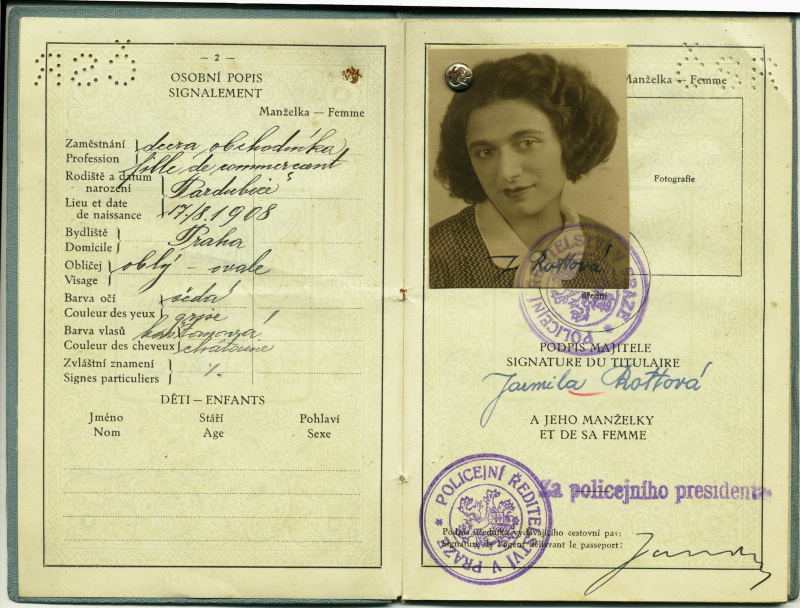 RSČ
— 2 —
OSOBNÍ POPIS
SIGNALEMENT
Manželka — Femme
Zaměstnání
Profession
dcera obchodníka
fille de commercant
Rodiště a datum
narození
Pardubice
Lieu et date
de naissance
17/8. 1908
Bydliště
Domicile
Praha
Obličej
Visage
oblý - ovale
Barva očí
šedá
Couleur des yeux
grise
Barva vlasů
kaštanová
Couleur des cheveux
chataine
Zvláštní znamení
Signes particuliers
DĚTI — ENFANTS
Jméno Stáří Pohlaví
Nom Age Sexe
RSČ
Manželka — Femme
Fotografie
J. Rottová
úřední
POLICEJNÍ ŘEDITELSTVÍ V PRAZE
PODPIS MAJITELE
SIGNATURE DU TITULAIRE
Jarmila Rottová
A JEHO MANŽELKY
ET DE SA FEMME
Za policejního presidenta
POLICEJNÍ ŘEDITELSTVÍ V PRAZE
Podpis úředníka vydávajícího cestovní pas:
Signature de l'agent délivrant le passeport: